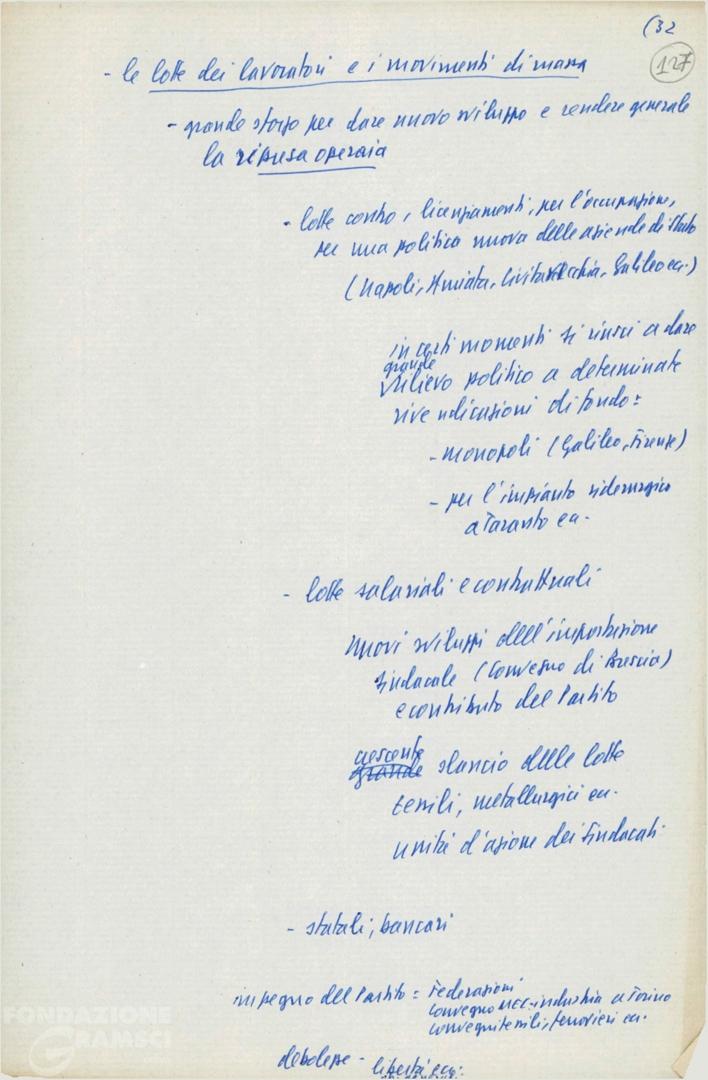 (32
127
- le lotte dei lavoratori e i movimenti di massa
- grande sforzo per dare nuovo sviluppo e rendere generale
la ripresa operaia
- lotte contro i licenziamenti, per l'occupazione,
per una politica nuova delle aziende di Stato
(Napoli, Amiata, Civitavecchia, Galileo ecc.)
in certi momenti si riuscì a dare
grande
rilievo politico a determinate
rivendicazioni di fondo =
- monopoli (Galileo, Firenze)
- per l'impianto siderurgico
a Taranto ecc.
- lotte salariali e contrattuali
nuovi sviluppi dell'impostazione
sindacale (Convegno di Brescia)
e contributo del Partito
crescente
grande slancio delle lotte
tessili, metallurgici ecc.
unità d'azione dei Sindacati
- statali, bancari
impegno del Partito = Federazioni
convegno industria a Torino
convegni tessili, ferrovieri ecc.
debolezze - libertà ecc.
FONDAZIONE
GRAMSCI